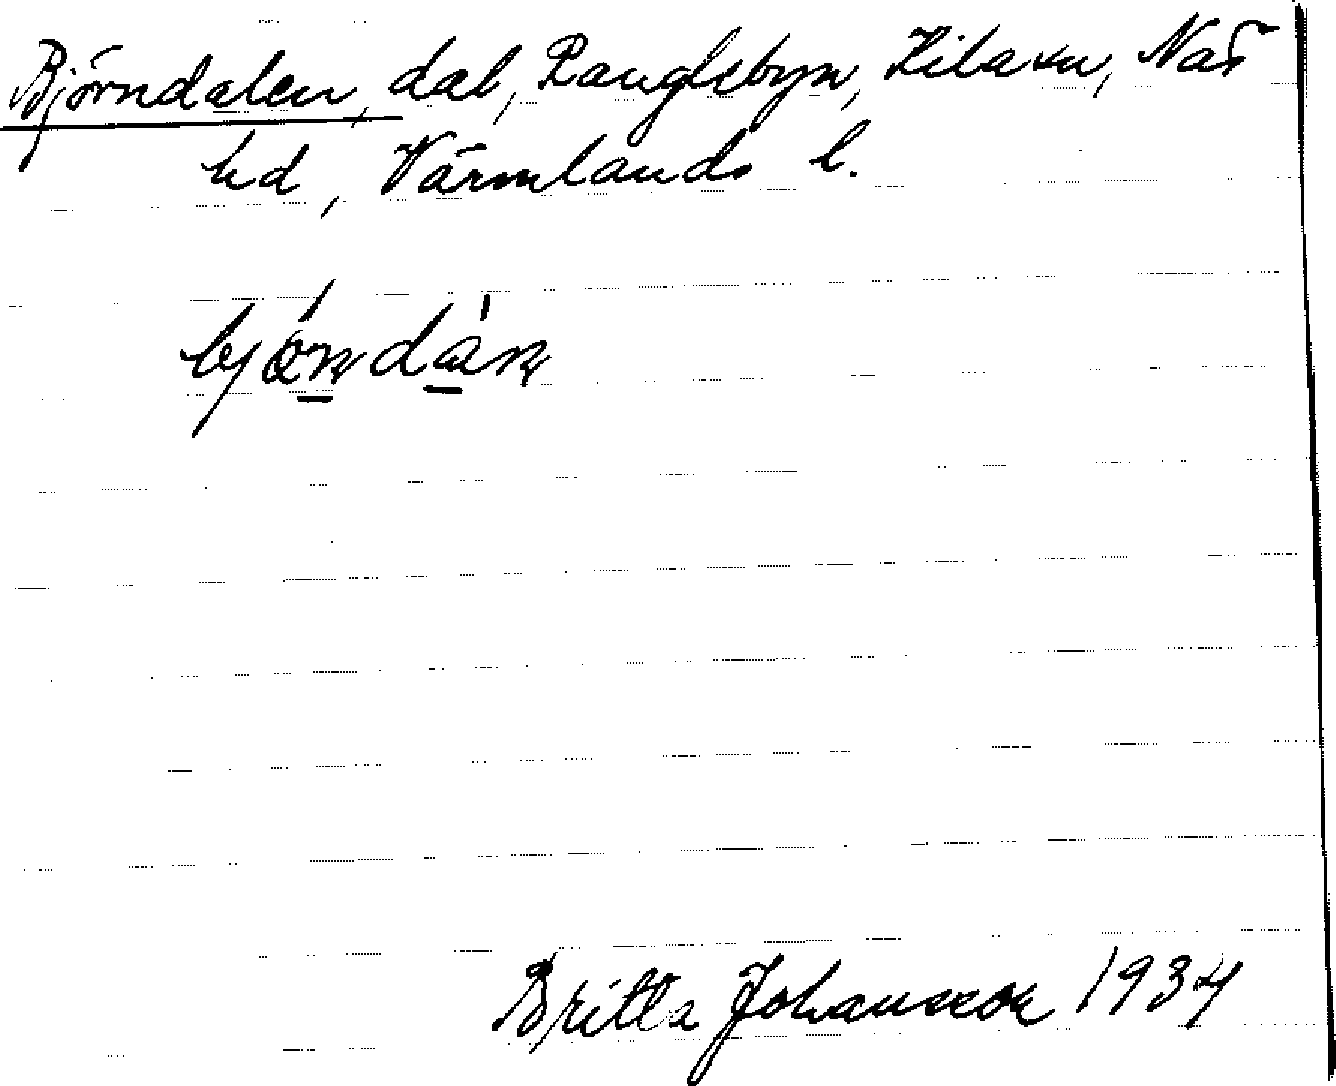 Björndalen, dal, Ranglsbyn, Kila sn, Näs
hd, Värmlands l.
Britta Johansson 1934